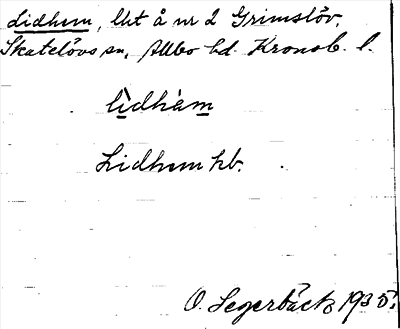 Lidhem, lht å nr 2 Grimslöv,
Skatelövs sn, Allbo hd. Kronob. l.
lìdhàm
Lidhem kb.
O. Segerbäck 1935.